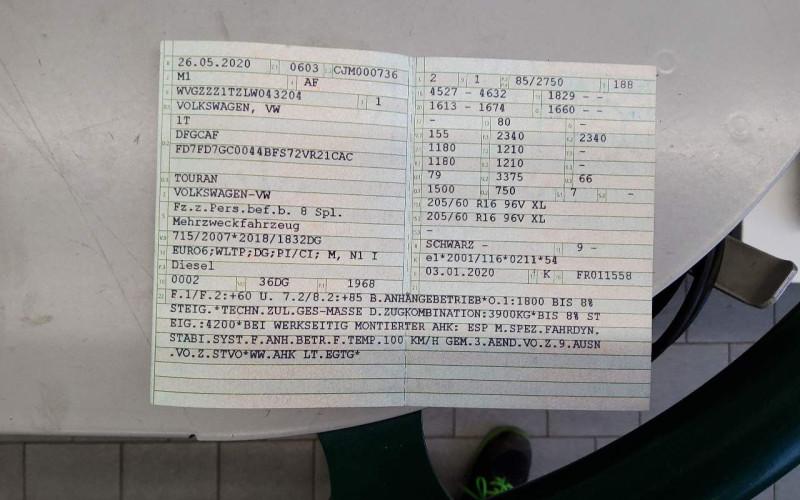 26.05.2020 0603 CJM000736
M1 AF
WVGZZZ1TZLW043204 1
VOLKSWAGEN, VW
1T
DFGCAF
FD7FD7GC0044BFS72VR21CAC
TOURAN
VOLKSWAGEN-VW
Fz.z.Pers.bef.b. 8 Spl.
Mehrzweckfahrzeug
715/2007*2018/1832DG
EURO6;WLTP;DG;PI/CI; M, N1 I
Diesel
0002 36DG 1968
2 1 85/2750 188
4527 - 4632 1829 - -
1613 - 1674 1660 - -
- 80 -
155 2340 2340
1180 1210 -
1180 1210 -
79 3375 66
1500 750 7 -
205/60 R16 96V XL
205/60 R16 96V XL
-
SCHWARZ - 9 -
e1*2001/116*0211*54
03.01.2020 K FR011558
F.1/F.2:+60 U. 7.2/8.2:+85 B.ANHÄNGEBETRIEB*O.1:1800 BIS 8%
STEIG.*TECHN.ZUL.GES-MASSE D.ZUGKOMBINATION:3900KG*BIS 8% ST
EIG.:4200*BEI WERKSEITIG MONTIERTER AHK: ESP M.SPEZ.FAHRDYN.
STABI.SYST.F.ANH.BETR.F.TEMP.100 KM/H GEM.3.AEND.VO.Z.9.AUSN
.VO.Z.STVO*WW.AHK LT.EGTG*